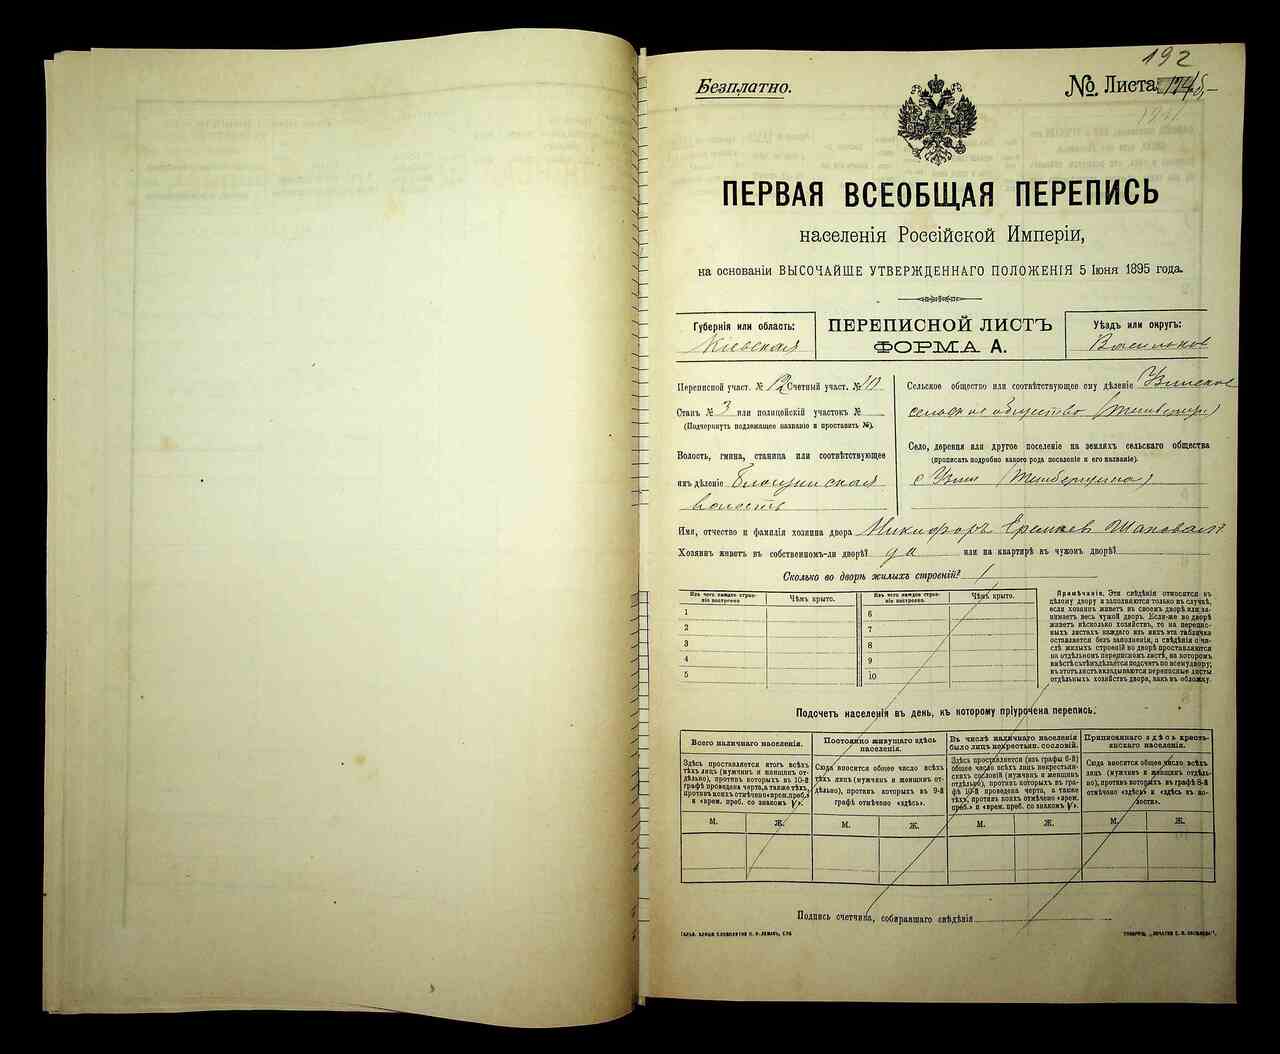 192
Безплатно.
№. Листа
ПЕРВАЯ ВСЕОБЩАЯ ПЕРЕПИСЬ
населенія Россійской Имперіи,
на основаніи ВЫСОЧАЙШЕ УТВЕРЖДЕННАГО ПОЛОЖЕНІЯ 5 Іюня 1895 года.
Губернія или область:
Кіевская
ПЕРЕПИСНОЙ ЛИСТЪ
ФОРМА А.
Уѣздъ или округъ:
Васильков
Переписной участ. № 12 Счетный участ. №
Станъ № 3 или полицейскій участокъ №
(Подчеркнуть подлежащее названіе и проставить №).
Волость, гмина, станица или соотвѣтствующее
имъ дѣленіе
волость
Сельское общество или соотвѣтствующее ему дѣленіе Узинское
сельское общество
Село, деревня или другое поселеніе на земляхъ сельскаго общества
(прописать подробно какого рода поселеніе и его названіе).
с Узин
Имя, отчество и фамилія хозяина двора Никифоръ Еремеев Шаповал
Хозяинъ живетъ въ собственномъ-ли дворѣ? да или на квартирѣ въ чужомъ дворѣ?
Сколько во дворѣ жилыхъ строеній? 1
Изъ чего каждое строеніе построено.
Чѣмъ крыто.
1
2
3
4
5
Изъ чего каждое строеніе построено.
Чѣмъ крыто.
6
7
8
9
10
Примѣчаніе. Эти свѣдѣнія относятся къ
цѣлому двору и заполняются только въ случаѣ,
если хозяинъ живетъ въ своемъ дворѣ или за-
нимаетъ весь чужой дворъ. Если-же во дворѣ
живетъ нѣсколько хозяйствъ, то на перепис-
ныхъ листахъ каждаго изъ нихъ эта табличка
оставляется безъ заполненія, а свѣдѣнія о чи-
слѣ жилыхъ строеній во дворѣ проставляются
на отдѣльномъ переписномъ листѣ, на которомъ
вмѣстѣ съ тѣмъ дѣлается подсчетъ по всему двору;
въ этотъ листъ вкладываются переписные листы
отдѣльныхъ хозяйствъ двора, какъ въ обложку.
Подсчетъ населенія въ день, къ которому пріурочена перепись.
Всего наличнаго населенія.
Здѣсь проставляется итогъ всѣхъ
тѣхъ лицъ (мужчинъ и женщинъ от-
дѣльно), противъ которыхъ въ 10-й
графѣ проведена черта, а также тѣхъ,
противъ коихъ отмѣчено «врем. преб.»
и «врем. преб. со знакомъ V».
М.
Ж.
Постоянно живущаго здѣсь
населенія.
Сюда вносится общее число всѣхъ
тѣхъ лицъ (мужчинъ и женщинъ от-
дѣльно), противъ которыхъ въ 9-й
графѣ отмѣчено «здѣсь».
М.
Ж.
Въ числѣ наличнаго населенія
было лицъ некрестьян. сословій.
Здѣсь проставляется (изъ графы 6-й)
общее число всѣхъ лицъ некрестьян-
скихъ сословій (мужчинъ и женщинъ
отдѣльно), противъ которыхъ въ гра-
фѣ 10-й проведена черта, а также
тѣхъ, противъ коихъ отмѣчено «врем.
преб.» и «врем. преб. со знакомъ V».
М.
Ж.
Приписаннаго здѣсь кресть-
янскаго населенія.
Сюда вносится общее число всѣхъ
лицъ (мужчинъ и женщинъ отдѣль-
но), противъ которыхъ въ графѣ 8-й
отмѣчено «здѣсь» и «здѣсь въ во-
лости».
М.
Ж.
Подпись счетчика, собиравшаго свѣдѣнія